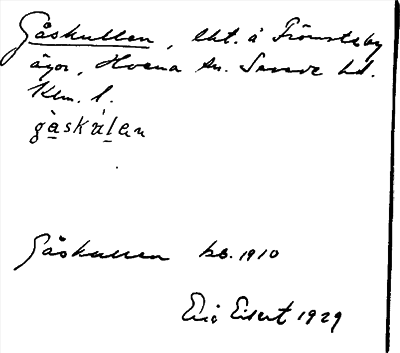 Gåskullen, lht. å Frömsteby
ägor, Hvena sn. Sevede hd.
Klm. l.
gàskùlen
Gåskullen kb. 1910
Eric Eilert 1929